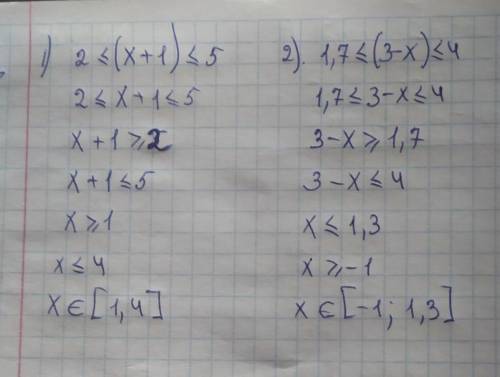 1) 2 ≤ (x+1) ≤ 5
2 ≤ x+1 ≤ 5
x+1 ≥ 2
x+1 ≤ 5
x ≥ 1
x ≤ 4
x ∈ [1,4]
2). 1,7 ≤ (3-x) ≤ 4
1,7 ≤ 3-x ≤ 4
3-x ≥ 1,7
3-x ≤ 4
x ≤ 1,3
x ≥ -1
x ∈ [-1; 1,3]